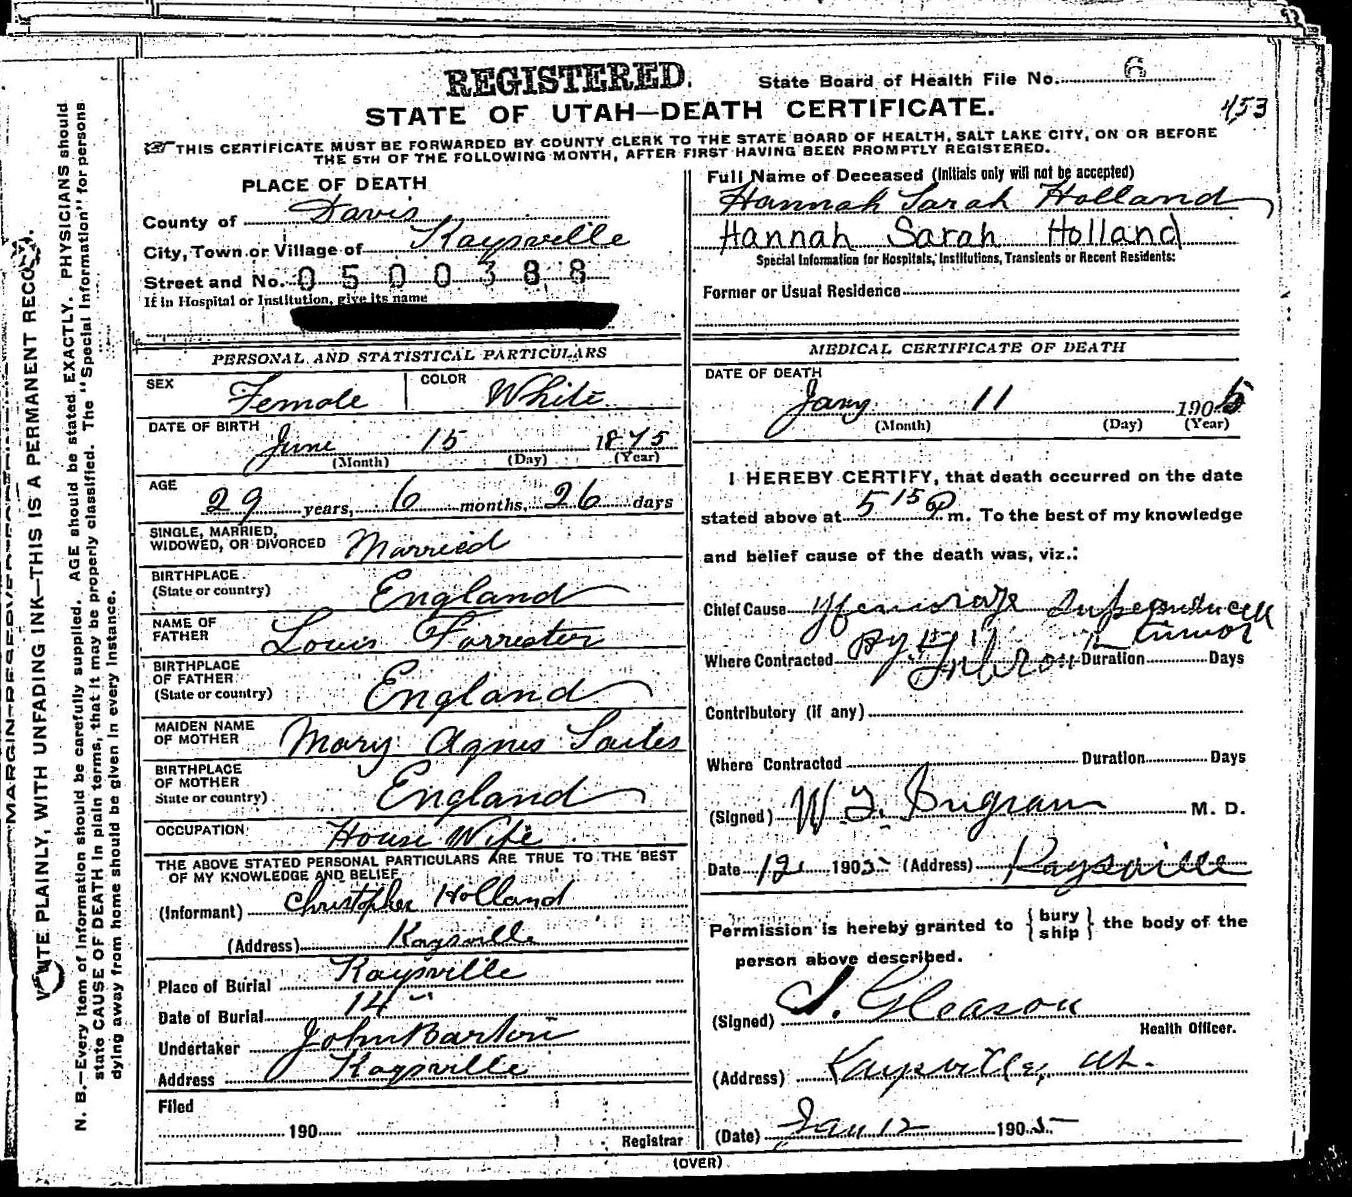 REGISTERED.
State Board of Health File No. 6
STATE OF UTAH—DEATH CERTIFICATE.
453
THIS CERTIFICATE MUST BE FORWARDED BY COUNTY CLERK TO THE STATE BOARD OF HEALTH, SALT LAKE CITY, ON OR BEFORE
THE 5TH OF THE FOLLOWING MONTH, AFTER FIRST HAVING BEEN PROMPTLY REGISTERED.
PLACE OF DEATH
County of Davis
City, Town or Village of Kaysville
Street and No. 0500388
If in Hospital or Institution, give its name
PERSONAL AND STATISTICAL PARTICULARS
SEX Female COLOR White
DATE OF BIRTH June 15 1875
(Month) (Day) (Year)
AGE 29 years, 6 months, 26 days
SINGLE, MARRIED,
WIDOWED, OR DIVORCED Married
BIRTHPLACE
(State or country) England
NAME OF
FATHER Louis Forrester
BIRTHPLACE
OF FATHER
(State or country) England
MAIDEN NAME
OF MOTHER Mary Agnes
BIRTHPLACE
OF MOTHER
State or country) England
OCCUPATION House Wife
THE ABOVE STATED PERSONAL PARTICULARS ARE TRUE TO THE BEST
OF MY KNOWLEDGE AND BELIEF
(Informant) Christopher Holland
(Address) Kaysville
Place of Burial Kaysville
Date of Burial 14
Undertaker John Barton
Address Kaysville
Filed
190
Registrar
Full Name of Deceased (Initials only will not be accepted)
Hannah Sarah Holland
Hannah Sarah Holland
Special Information for Hospitals, Institutions, Transients or Recent Residents:
Former or Usual Residence
MEDICAL CERTIFICATE OF DEATH
DATE OF DEATH
Jany 11 1905
(Month) (Day) (Year)
I HEREBY CERTIFY, that death occurred on the date
stated above at 5 15 P m. To the best of my knowledge
and belief cause of the death was, viz.:
Chief Cause
tumor
Where Contracted Duration Days
Contributory (if any)
Where Contracted Duration Days
(Signed) W. Ingram M. D.
Date 12 1905 (Address) Kaysville
Permission is hereby granted to { bury ship } the body of the
person above described.
(Signed) Gleason
Health Officer.
(Address) Kaysville, Ut.
(Date) Jan 12 1905
(OVER)
WRITE PLAINLY, WITH UNFADING INK—THIS IS A PERMANENT RECORD.
N. B.—Every item of information should be carefully supplied. AGE should be stated EXACTLY. PHYSICIANS should
state CAUSE OF DEATH in plain terms, that it may be properly classified. The "Special Information" for persons
dying away from home should be given in every instance.